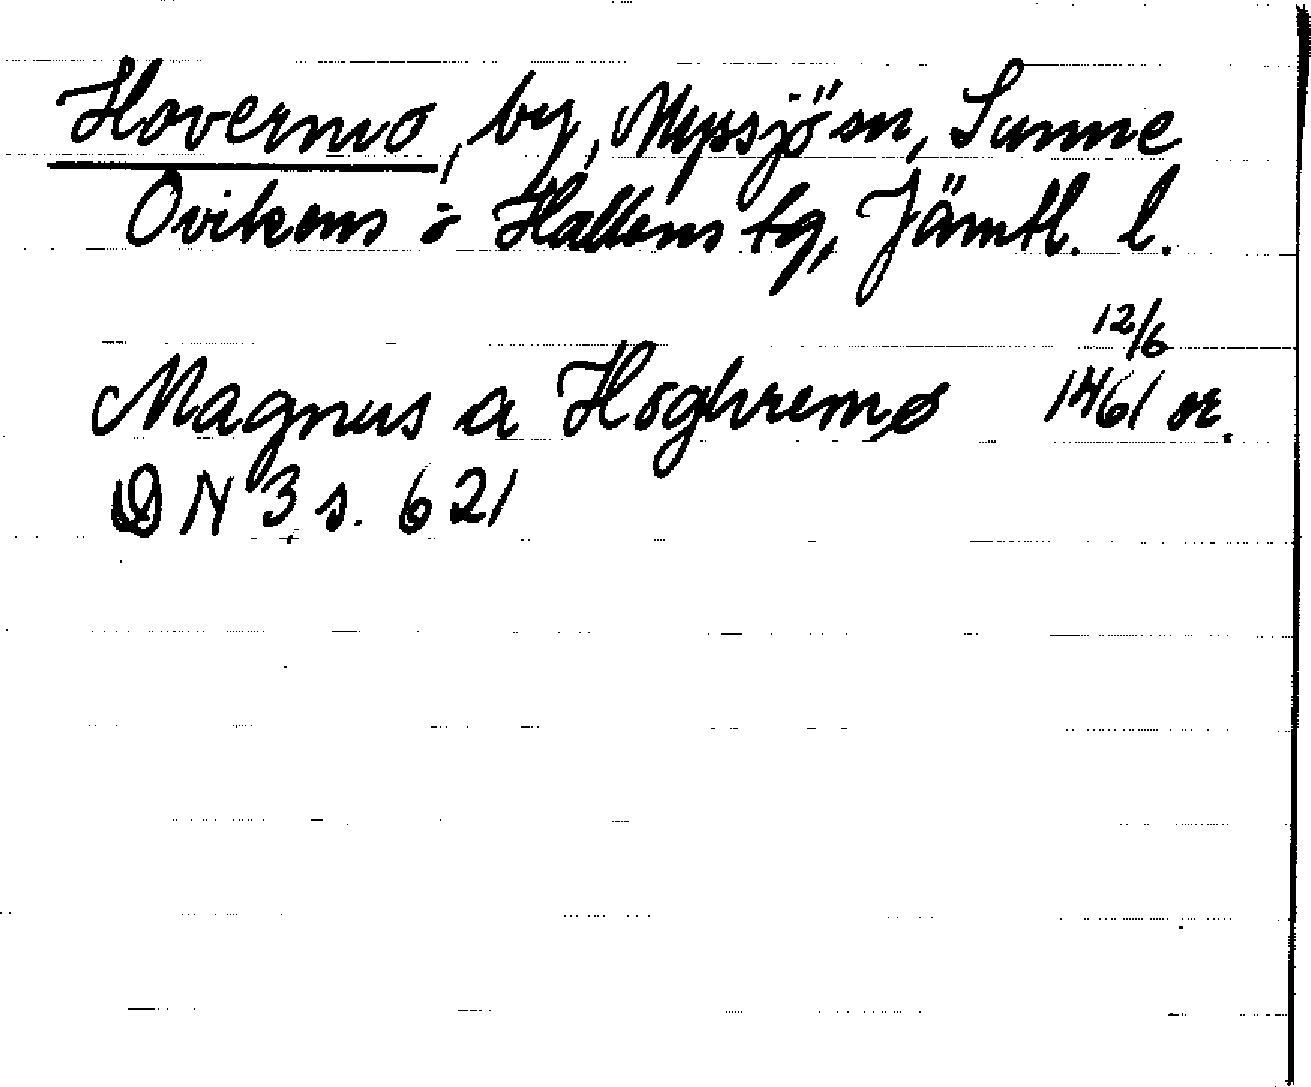 Hovermo, by, Myssjö sn, Sunne
Ovikens o Hallens tg, Jämtl. l.
12/6
Magnus a Hoghremø 1461 or.
DN 3 s. 621